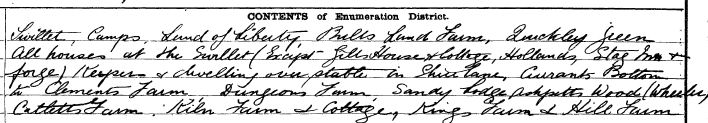 CONTENTS of Enumeration District.
Swillet, Camps, Land of Liberty, Bulls Land Farm, Quickley Green
All houses at the Swillet (Except Gills House & Cottage, Hollands, Stag Inn &
forge) Keepers & dwelling over stable in Shire Lane, Currants Bottom
to Clements Farm, Dungeons Farm, Sandy Lodge, Ashpitts Wood (Wheeler,
Catletts Farm, Kiln Farm & Cottage, Kings Farm & Hill Farm